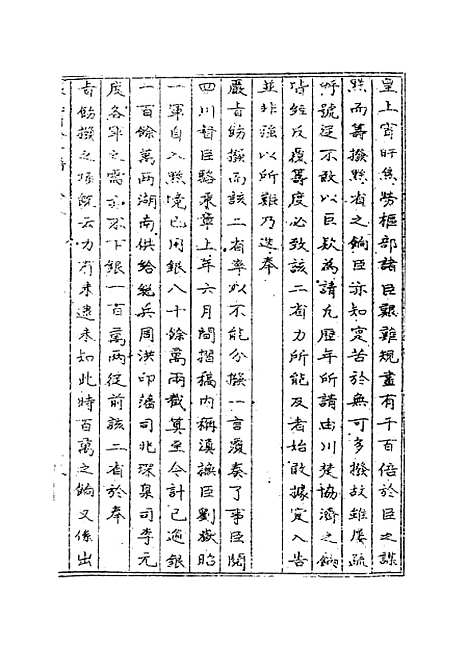 皇上宵旰焦勞樞部諸臣艱難規畫有千百倍於臣之謀
黔而籌撥黔省之餉臣亦知定苦於無可多撥故雖屢疏
呼號迄不敢以巨款為請凡歷年所請由川楚協濟之餉
皆經反覆籌度必致該二省力所能及者始敢據實入告
並非強以所難乃迭奉
嚴旨飭撥而該二省率以不能分撥一言覆奏了事臣閱
四川督臣駱秉章上年六月間摺稿內稱滇撫臣劉嶽昭
一軍自入黔境已用銀八十餘萬兩截算至今計已逾銀
一百餘萬兩湖南供給總兵周洪印藩司兆琛臬司李元
度各軍之需亦不下銀一百萬兩從前該二省於奉
旨飭撥之項既云力有未逮未知此時百萬之餉又係出